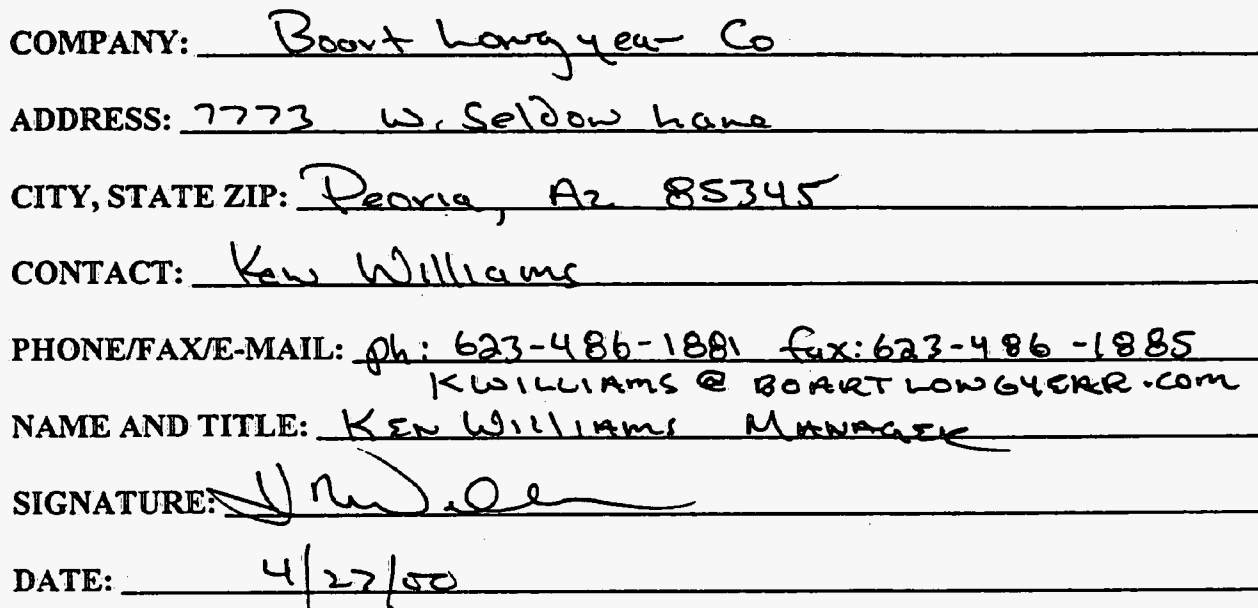 COMPANY: Boart Longyear Co
ADDRESS: 7773 W. Seldon Lane
CITY, STATE ZIP: Peoria, Az 85345
CONTACT: Ken Williams
PHONE/FAX/E-MAIL: ph: 623-486-1881 fax: 623-486-1885
KWILLIAMS @ BOARTLONGYEAR.com
NAME AND TITLE: KEN WILLIAMS MANAGER
SIGNATURE:
DATE: 4/27/00